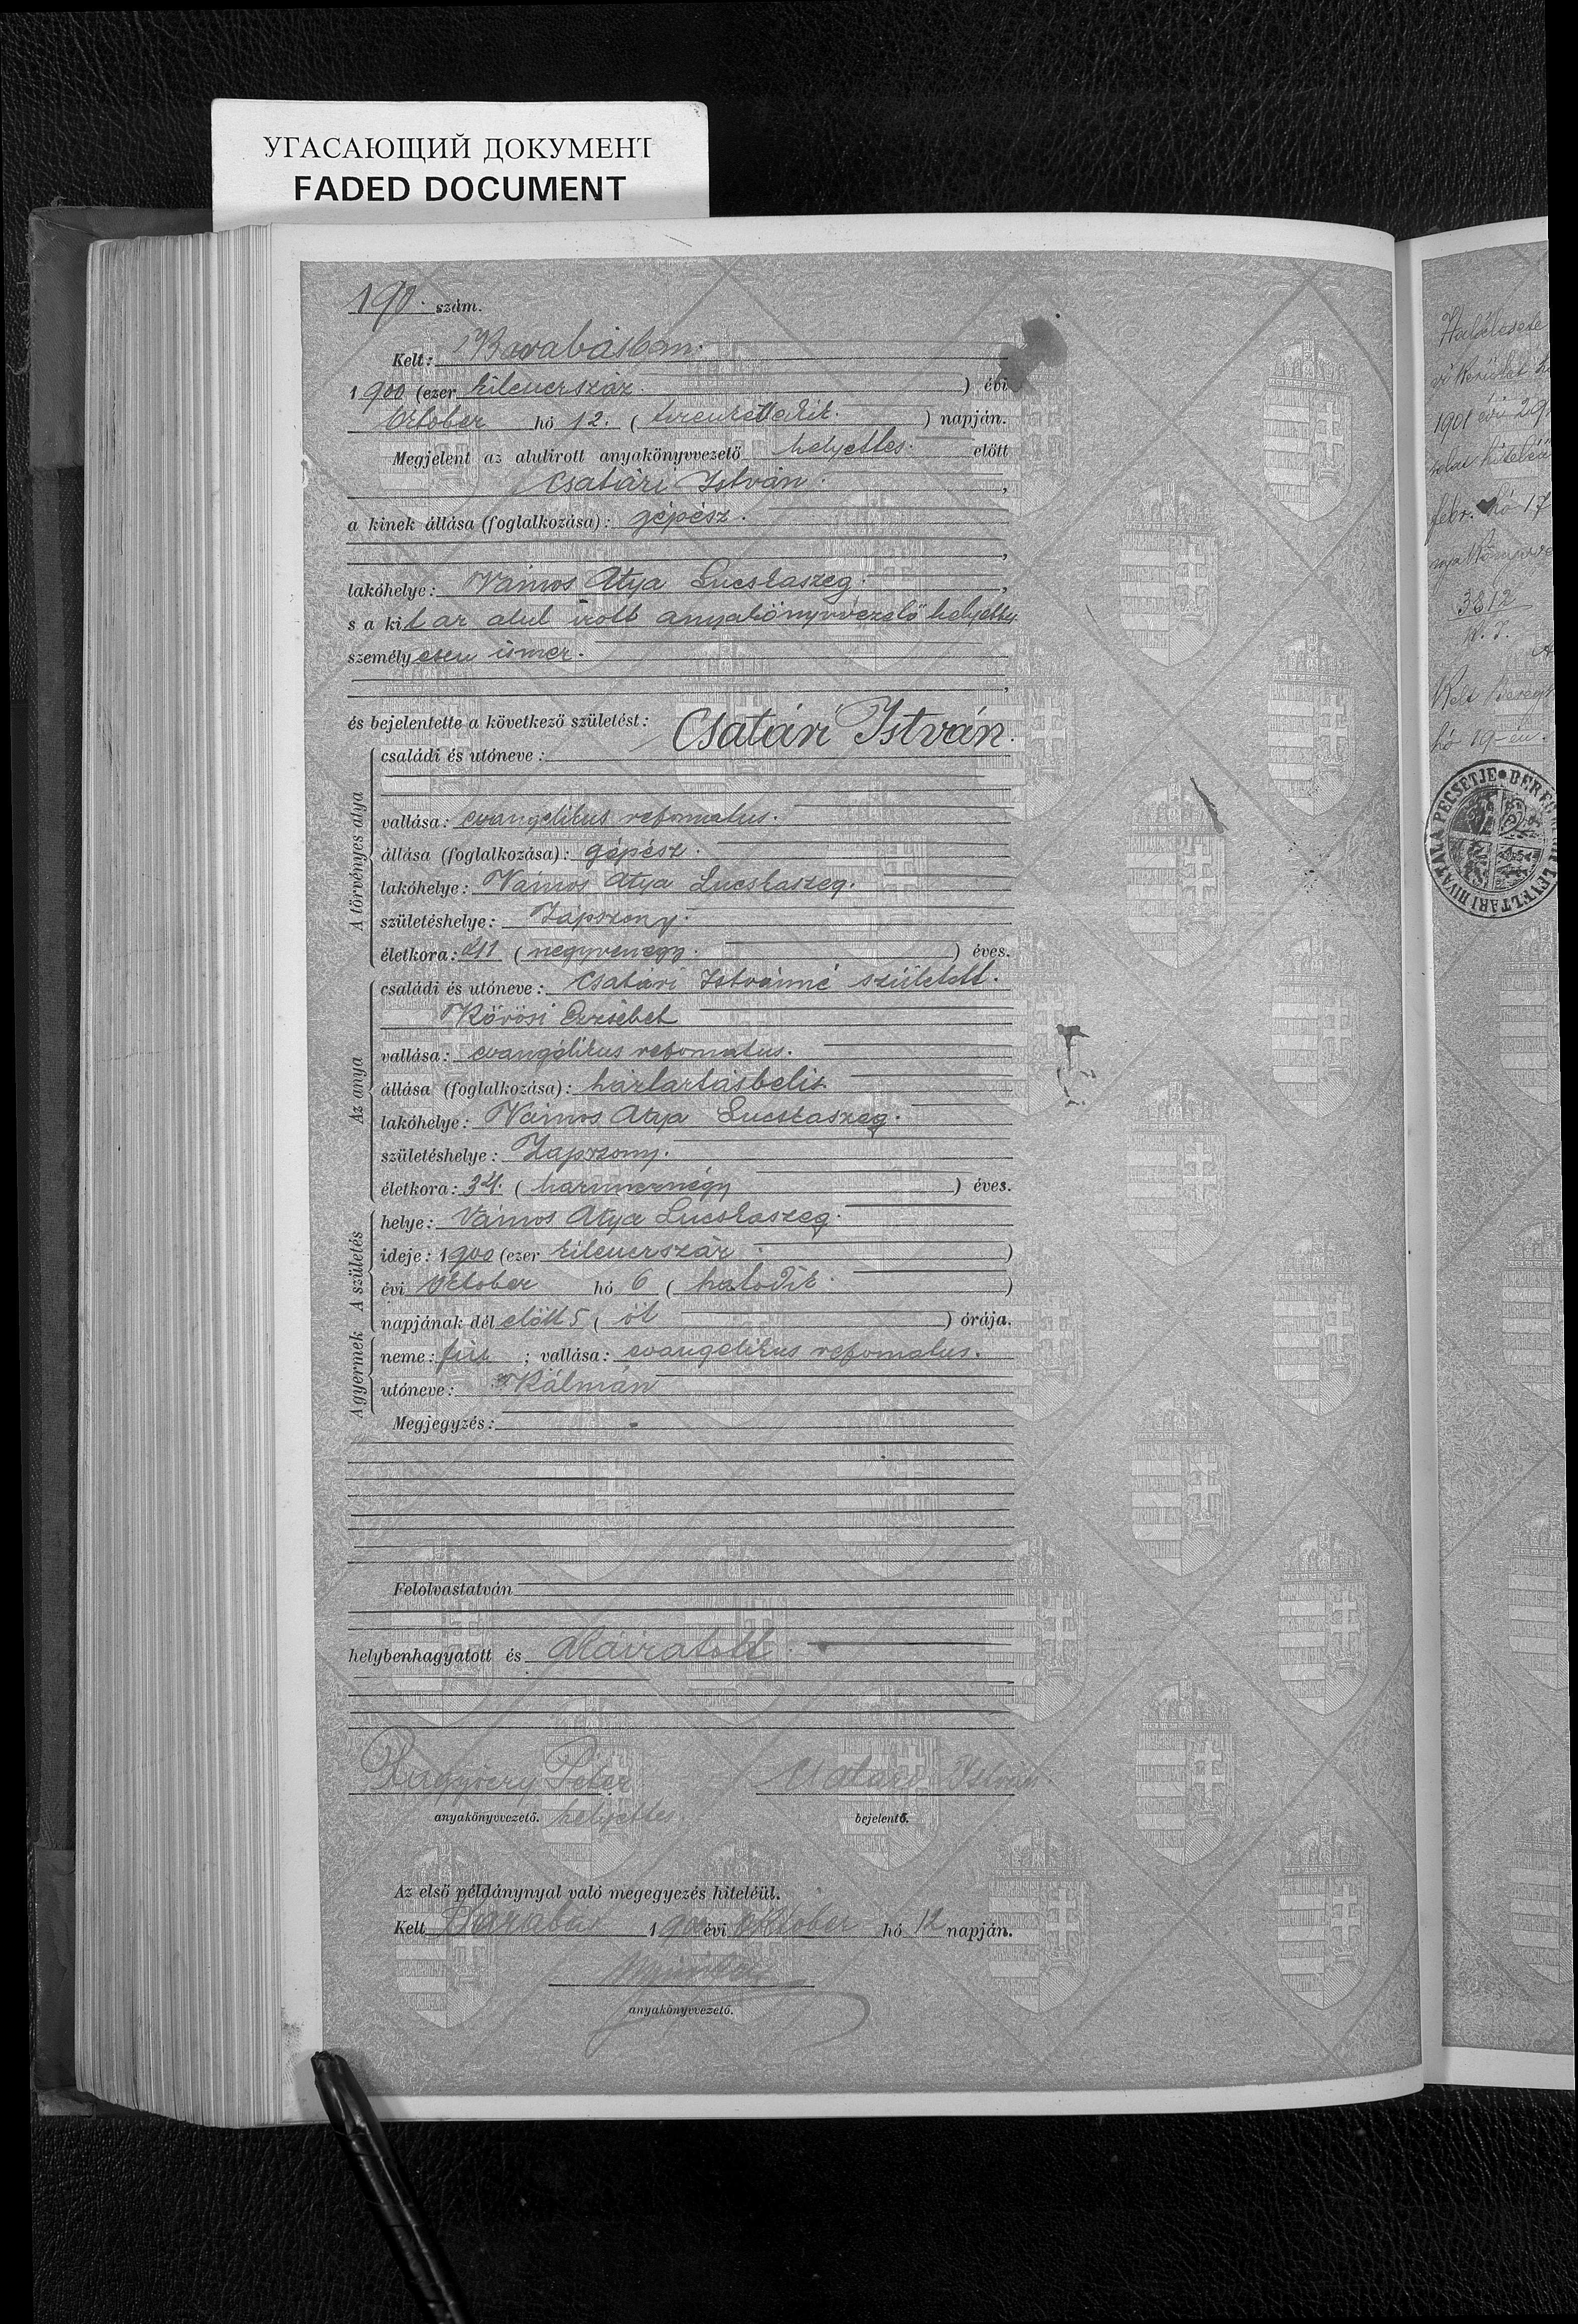 УГАСАЮЩИЙ ДОКУМЕНТ
FADED DOCUMENT
190. szám.
Kelt: Barabásban.
1900 (ezer kilencszáz ) évi
október hó 12. ( tizenkettedik. ) napján.
Megjelent az alulirott anyakönyvvezető helyettes. előtt
Csatári István.
a kinek állása (foglalkozása): gépész.
lakóhelye: Vámos Atya Lucskaszeg.
s a kit az alul irott anyakönyvvezető helyettes
személyesen ismer.
és bejelentette a következő születést:
A törvényes atya
családi és utóneve: Csatári István.
vallása: evangelikus reformatus.
állása (foglalkozása): gépész.
lakóhelye: Vámos Atya Lucskaszeg.
születéshelye: Zápszony.
életkora: 41 ( negyvenegy. ) éves.
Az anya
családi és utóneve: Csatári Istvánné született.
Kőrösi Erzsébet
vallása: evangélikus refomatus.
állása (foglalkozása): háztartásbeli
lakóhelye: Vámos Atya Lucskaszeg.
születéshelye: Zapszony.
életkora: 34. ( harmincnégy ) éves.
A születés
helye: Vámos Atya Lucskaszeg.
ideje: 1900 (ezer kilencszáz )
évi október hó 6 ( hatodik )
napjának dél előtt 5 ( öt ) órája.
A gyermek
neme: fiú ; vallása: evangelikus refomatus.
utóneve: Kálmán
Megjegyzés:
Felolvastatván
helybenhagyatott és aláiratott.
Péter Csatári István
anyakönyvvezető. helyettes. bejelentő.
Az első példánynyal való megegyezés hiteléül.
Kelt Barabás 1900 évi október hó 12 napján.
anyakönyvvezető.
1901 évi 29
febr. hó 17
3812
hó 19-én.